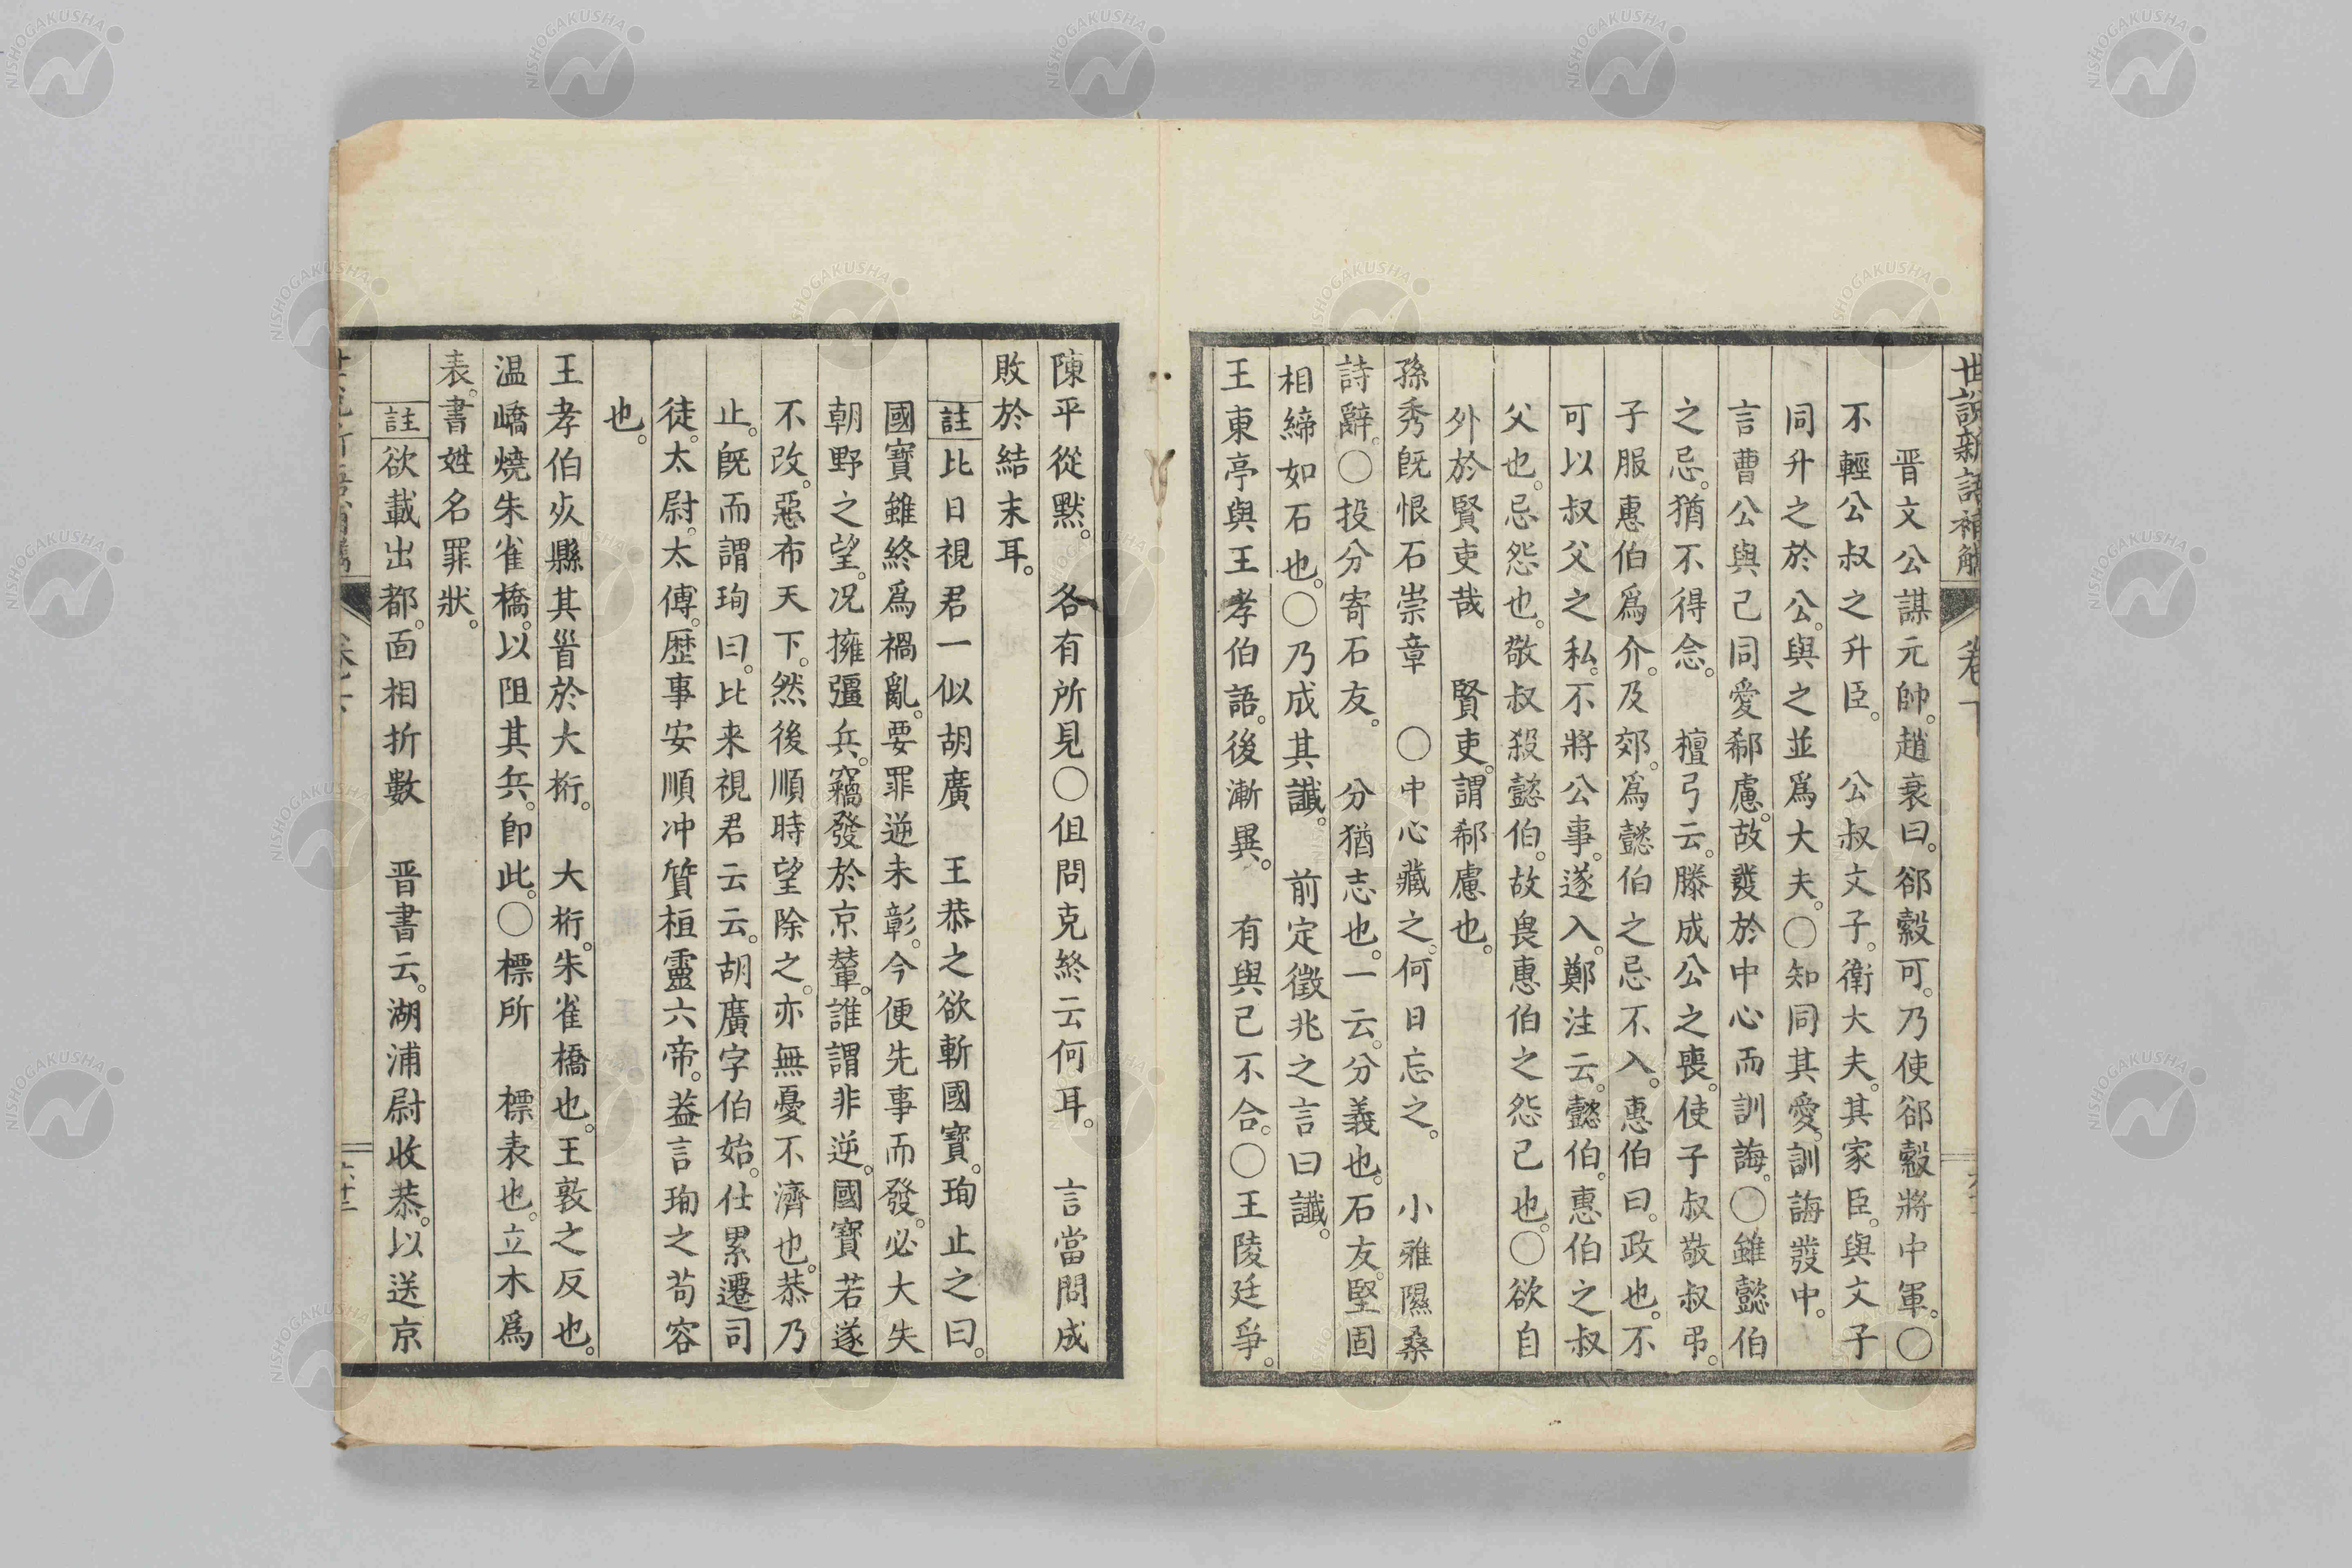 世說新語補觿 卷下
晋文公謀元帥。趙衰曰。郤縠可。乃使郤縠將中軍。〇
不輕公叔之升臣。　公叔文子。衛大夫。其家臣。與文子
同升之於公。與之並爲大夫。〇知同其愛。訓誨發中。
言曹公與己同愛郗慮。故發於中心而訓誨。〇雖懿伯
之忌。猶不得念。　檀弓云。滕成公之喪。使子叔敬叔弔。
子服惠伯爲介。及郊。爲懿伯之忌不入。惠伯曰。政也。不
可以叔父之私。不將公事。遂入。鄭注云。懿伯。惠伯之叔
父也。忌怨也。敬叔殺懿伯。故畏惠伯之怨己也。〇欲自
外於賢吏哉　賢吏。謂郗慮也。
孫秀既恨石崇章　〇中心藏之。何日忘之。　小雅隰桑
詩辭。〇投分寄石友。　分猶志也。一云。分義也。石友。堅固
相締如石也。〇乃成其讖。　前定徵兆之言曰讖。
王東亭與王孝伯語。後漸異。　有與己不合。〇王陵廷爭。
陳平從默。　各有所見〇伹問克終云何耳。　言當問成
敗於結末耳。
註比日視君一似胡廣　王恭之欲斬國寶。珣止之曰。
國寶雖終爲禍亂。要罪逆未彰。今便先事而發。必大失
朝野之望。况擁彊兵。竊發於京輦。誰謂非逆。國寶若遂
不改。惡布天下。然後順時望除之。亦無憂不濟也。恭乃
止。既而謂珣曰。比来視君云云。胡廣字伯始。仕累遷司
徒。太尉。太傅。歷事安順冲質桓靈六帝。葢言珣之苟容
也。
王孝伯死縣其首於大桁。　大桁。朱雀橋也。王敦之反也。
温嶠燒朱雀橋。以阻其兵。卽此。〇標所　標表也。立木爲
表。書姓名罪狀。
註欲載出都。面相折數　晋書云。湖浦尉收恭。以送京